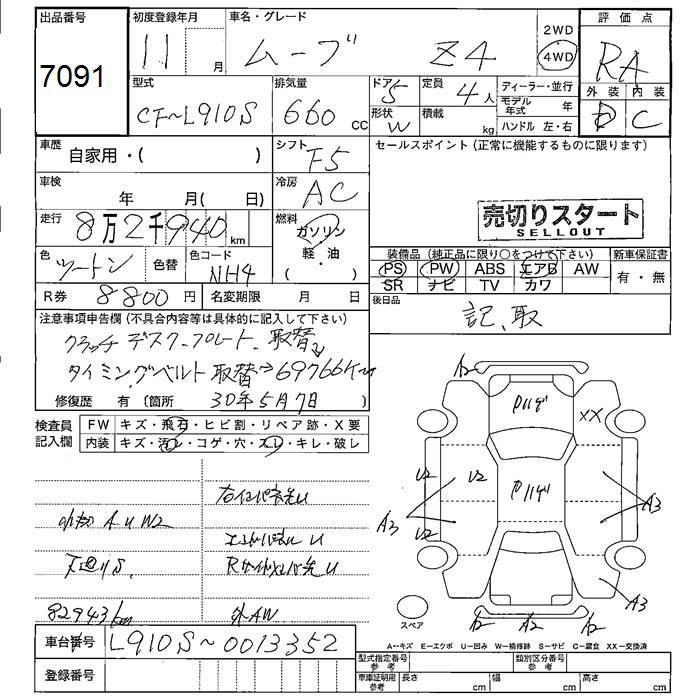 出品番号
7091
初度登録年月
11 月
車名・グレード
ムーブ Z4
2WD
4WD
評価点
RA
外装 内装
D C
型式
CF~L910S
排気量
660 cc
ドア
5
形状
W
定員
4人
積載
kg
ディーラー・並行
モデル年式 年
ハンドル 左・右
車歴
自家用・( )
シフト
F5
車検
年 月( 日)
冷房
AC
走行
8万2千940 km
燃料
ガソリン
軽・油
( )
色
ツートン
色替
色コード
NH4
R券
8800円
名変期限 月 日
セールスポイント(正常に機能するものに限ります)
売切りスタート
SELLOUT
装備品(純正品に限り○をつけて下さい)
新車保証書
PS PW ABS エアB AW
SR ナビ TV カワ
有・無
後日品
記、取
注意事項申告欄(不具合内容等は具体的に記入して下さい)
クラッチ デスク、プレート、取替
タイミングベルト 取替⇒69766Km
修復歴 有(箇所 30年5月7日 )
検査員記入欄
FW キズ・飛石・ヒビ割・リペア跡・X要
内装 キズ・汚レ・コゲ・穴・スレ・キレ・破レ
A U W2
82943km
外AW
車台番号 L910S~0013352
登録番号
A2
P11サ
XX
U2 U2
P11サ
A3 U2
A3
A3
A2 A2 A2
スペア
A…キズ E…エクボ U…凹み W…補修跡 S…サビ C…腐食 XX…交換済
型式指定番号参考
類別区分番号参考
車庫証明用参考 長さ cm 幅 cm 高さ cm